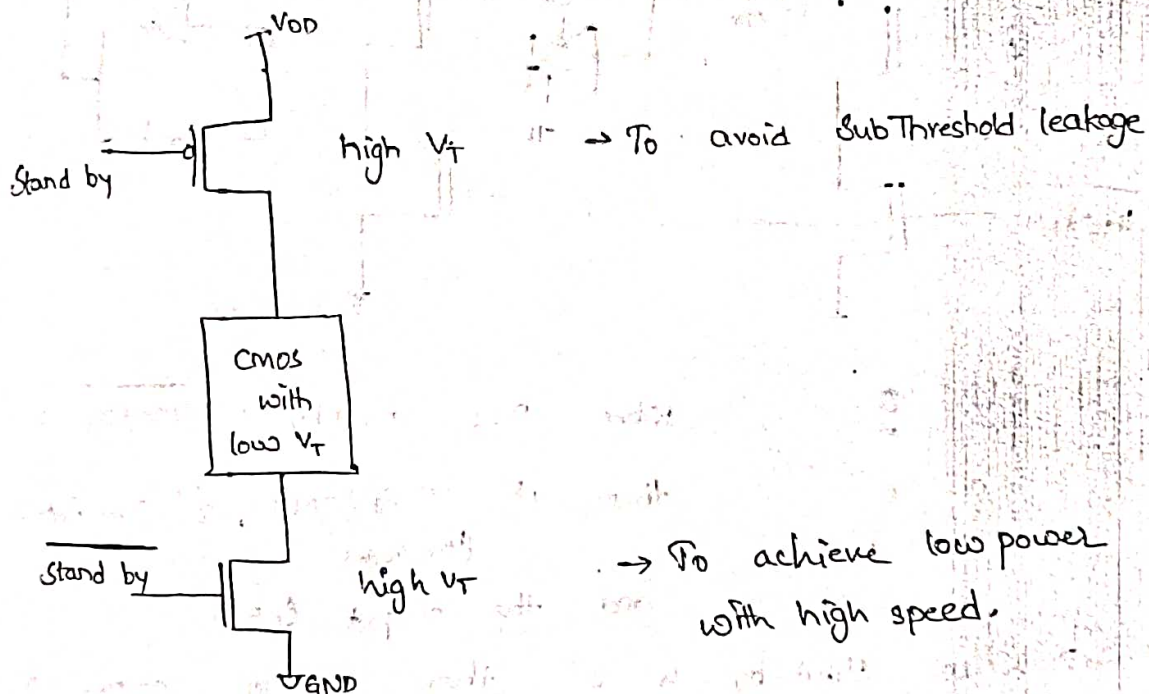 VDD
high VT → To avoid SubThreshold leakage
Stand by
CMOS
with
low VT
Stand by
high VT → To achieve low power
with high speed.
GND